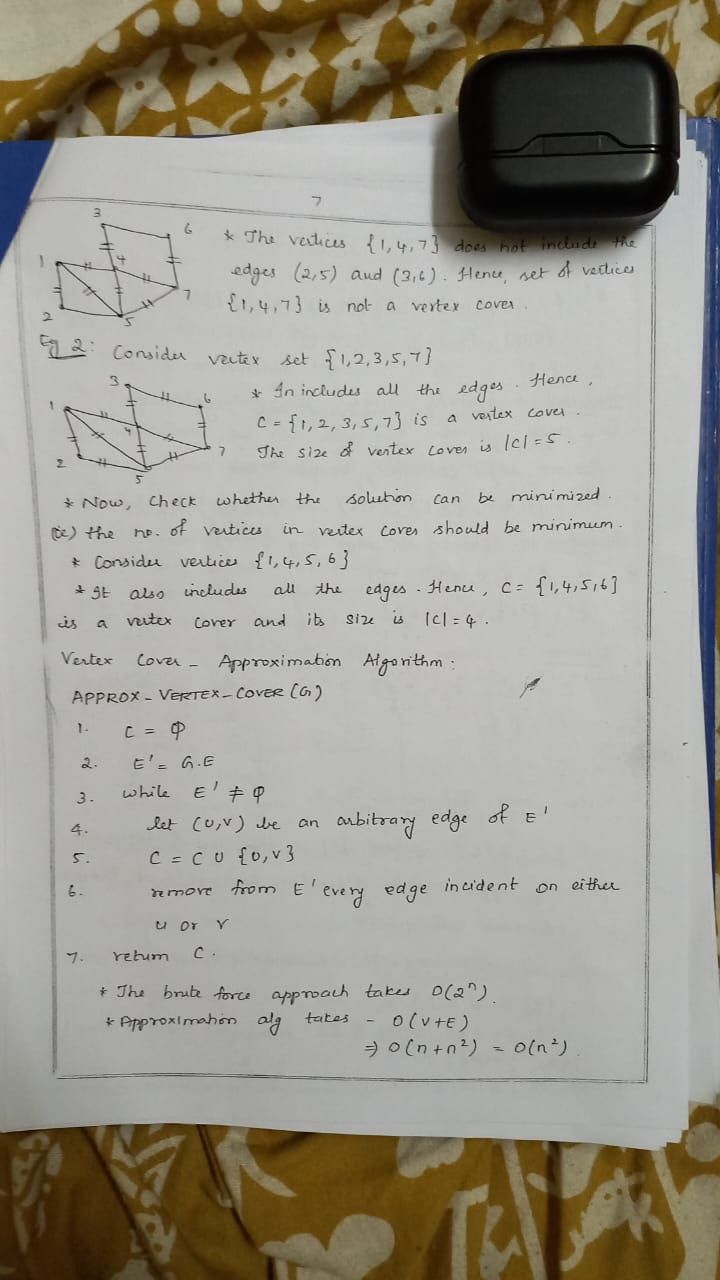 7
3
6
1
4
7
2
5
* The vertices {1,4,7} does not include the
edges (2,5) and (3,6). Hence, set of vertices
{1,4,7} is not a vertex cover.
Eg 2: Consider vertex set {1,2,3,5,7}
3
6
1
4
7
2
5
* In includes all the edges. Hence,
C = {1,2,3,5,7} is a vertex cover.
The size of vertex cover is |C| = 5.
* Now, check whether the solution can be minimized.
(ie) the no. of vertices in vertex cover should be minimum.
* Consider vertices {1,4,5,6}
* It also includes all the edges. Hence, C = {1,4,5,6}
is a vertex cover and its size is |C| = 4.
Vertex Cover - Approximation Algorithm:
APPROX-VERTEX-COVER (G)
1. C = φ
2. E' = G.E
3. while E' ≠ φ
4. let (u,v) be an arbitrary edge of E'
5. C = C ∪ {u,v}
6. remove from E' every edge incident on either
u or v
7. return C.
* The brute force approach takes O(2ⁿ).
* Approximation alg takes - O(V+E)
⇒ O(n+n²) = O(n²).